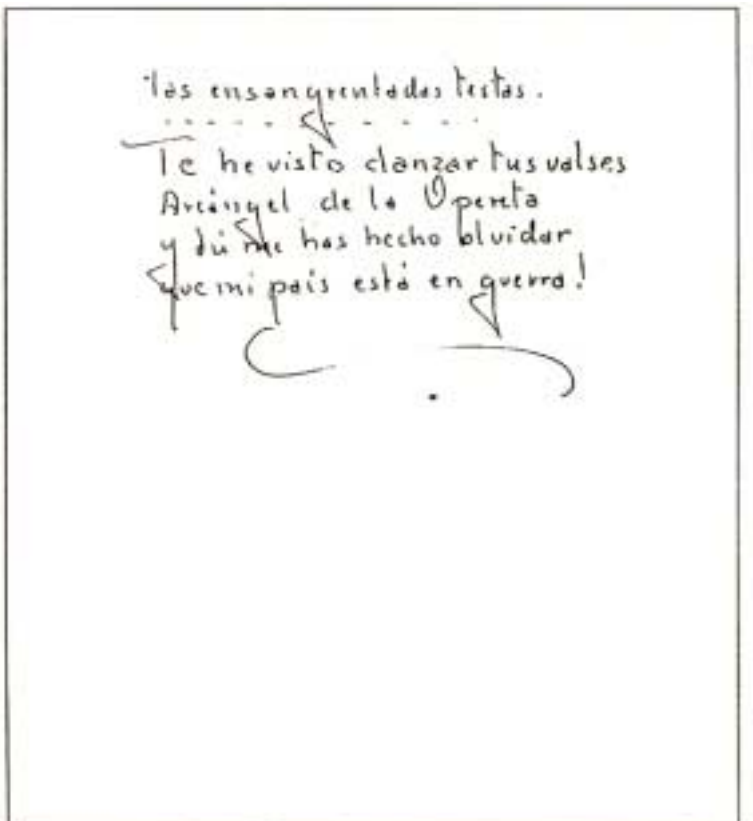 las ensangrentadas testas.
. . . . . . . . . .
Te he visto danzar tus valses
Arcángel de la Opereta
y tú me has hecho olvidar
que mi país está en guerra!